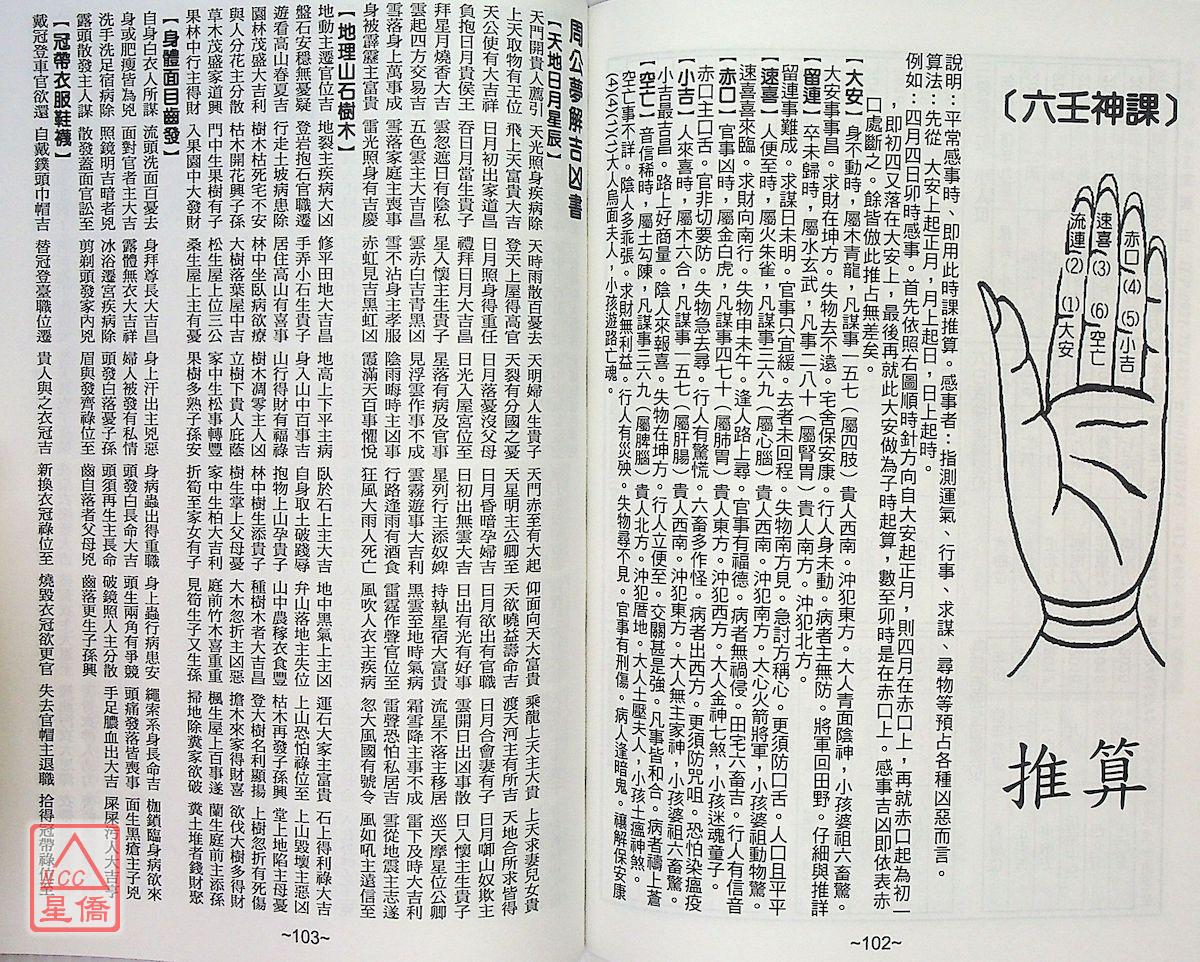 〔六壬神課〕
流連
速喜
赤口
(2)
(3)
(4)
(1)
(6)
(5)
大安
空亡
小吉
推算
說明：平常感事時、即用此時課推算。感事者：指測運氣、行事、求謀、尋物等預占各種凶惡而言。
算法：先從 大安上起正月，月上起日，日上起時。
例如：四月四日卯時感事。首先依照右圖順時針方向自大安起正月，則四月在赤口上，再就赤口起為初一
，即初四又落在大安上，最後再就此大安做為子時起算，數至卯時是在赤口上。感事吉凶即依表赤
口處斷之。餘皆倣此推占無差矣。
【大安】身不動時，屬木青龍，凡謀事一五七（屬四肢）貴人西南。沖犯東方。大人青面陰神，小孩婆祖六畜驚。
大安事事昌。求財在坤方。失物去不遠。宅舍保安康。行人身未動。病者主無防。將軍回田野。仔細與推詳
【留連】卒未歸時，屬水玄武，凡事二八十（屬腎胃）貴人南方。沖犯北方。
留連事難成。求謀日未明。官事只宜緩。去者未回程。失物南方見。急討方稱心。更須防口舌。人口且平平
【速喜】人便至時，屬火朱雀，凡謀事三六九（屬心腦）貴人西南。沖犯南方。大心火箭將軍，小孩婆祖動物驚。
速喜喜來臨。求財向南行。失物申未午。逢人路上尋。官事有福德。病者無禍侵。田宅六畜吉。行人有信音
【赤口】官事凶時，屬金白虎，凡謀事四七十（屬肺胃）貴人東方。沖犯西方。大人金神七煞，小孩迷魂童子。
赤口主口舌。官非切要防。失物急去尋。行人有驚慌。六畜多作怪。病者出西方。更須防咒咀。恐怕染瘟疫
【小吉】人來喜時，屬木六合，凡謀事一五七（屬肝腸）貴人西南。沖犯東方。大人無主家神，小孩婆祖六畜驚。
小吉最吉昌。路上好商量。陰人來報喜。失物在坤方。行人立便至。交關甚是強。凡事皆和合。病者禱上蒼
【空亡】音信稀時，屬土勾陳，凡謀事三六九（屬脾腦）貴人北方。沖犯厝地。大人土壓夫人，小孩土瘟神煞。
空亡事不詳。陰人多乖張。求財無利益。行人有災殃。失物尋不見。官事有刑傷。病人逢暗鬼。禳解保安康
(4)(4)(1)(1)大人烏面夫人，小孩遊路亡魂。
~102~
周公夢解吉凶書
【天地日月星辰】
天門開貴人薦引 天光照身疾病除 天時雨散百憂去 天明婦人生貴子 天門赤至有大起 仰面向天大富貴 乘龍上天主大貴 上天求妻兒女貴
上天取物有王位 飛上天富貴大吉 登天上屋得高官 天裂有分國之憂 天星明主公卿至 天欲曉益壽命吉 渡天河主有所吉 天地合所求皆得
天公使有大吉祥 日月初出家道昌 日月照身得重任 日月落憂沒父母 日月昏暗孕婦吉 日月欲出有官職 日月合會妻有子 日月啣山奴欺主
負抱日月貴侯王 吞日月當生貴子 禮拜日月大吉昌 日光入屋宮位至 日初出無雲大吉 日出有光有好事 雲開日出凶事散 日入懷主生貴子
拜星月燒香大吉 雲忽遮日有陰私 星入懷主生貴子 星落有病及官事 星列行主添奴婢 持執星宿大富貴 流星不落主移居 巡天摩星位公卿
雲起四方交易吉 五色雲主大吉昌 雲赤白吉青黑凶 見浮雲作事不成 雲霧遊事大吉利 黑雲至地時氣病 霜雪降主事不成 雷下及時大吉利
雪落身上萬事成 雪落家庭主喪事 雪不沾身主孝服 陰雨晦時主凶事 行路逢雨有酒食 雷霆作聲官位至 雷聲恐怕私居吉 雪從地震主志遂
身被霹靂主富貴 雷光照身有吉慶 赤虹見吉黑虹凶 霞滿天百事懼悅 狂風大雨人死亡 風吹人衣主疾病 忽大風國有號令 風如吼主遠信至
【地理山石樹木】
地動主遷官位吉 地裂主疾病大凶 修平田地大吉昌 地高上下平主病 臥於石上主大吉 地中黑氣上主凶 運石大家主富貴 石上得利祿大吉
盤石安穩無憂疑 登岩抱石官職遷 手弄小石生貴子 身入山中百事吉 自身取土破踐辱 弁山落地主失位 上山恐怕祿位至 上山毀壞主惡凶
遊看高山春夏吉 行走土坡病患除 居住高山有喜事 山行得財有福祿 抱物上山孕貴子 山中農稼衣食豐 枯木再發子孫興 堂上地陷主母憂
園林茂盛大吉利 樹木枯死宅不安 林中坐臥病欲療 樹木凋零主人凶 林中樹生添貴子 種樹木者大吉昌 登大樹名利顯揚 上樹忽折有死傷
與人分花主分散 枯木開花興子孫 大樹落葉屋中吉 立樹下貴人庇蔭 樹生掌上父母憂 大木忽折主凶惡 擔木來家得財喜 欲伐大樹多得財
草木茂盛家道興 門中生果樹有子 松生屋上位三公 家中生松事轉豐 家中生柏大吉利 庭前竹木喜重重 楓生屋上百事遂 蘭生庭前主添孫
果林中行主得財 入果園中大發財 桑生屋上主有憂 果樹多熟子孫安 折筍至家女有子 見筍生子又生孫 掃地除糞家欲破 糞土堆者錢財聚
【身體面目齒發】
自身白衣人所謀 流頭洗面百憂去 身拜尊長大吉昌 身上汗出主兇惡 身病蟲出得重職 身上蟲行病患安 繩索系身長命吉 枷鎖臨身病欲來
身或肥瘦皆為兇 面對官者主大吉 露體無衣大吉祥 婦人被發有私情 頭發白長命大吉 頭生兩角有爭競 頭痛發落皆喪事 面生黑瘡主子兇
洗手洗足宿病除 照鏡明吉暗者兇 冰浴遷宮疾病除 頭發白落憂子孫 頭須再生主長命 破鏡照人主分散 手足膿血出大吉 屎尿污人大吉亨
露頭散發主人謀 散發蓋面官訟至 剪剃頭發家內兇 眉與發齊祿位至 齒自落者父母兇 齒落更生子孫興
【冠帶衣服鞋襪】
戴冠登車官欲還 自戴鏷頭巾帽吉 替冠登臺職位遷 貴人與之衣冠吉 新換衣冠祿位至 燒毀衣冠欲更官 失去官帽主退職 拾得冠帶祿位至
~103~
NCC
星僑